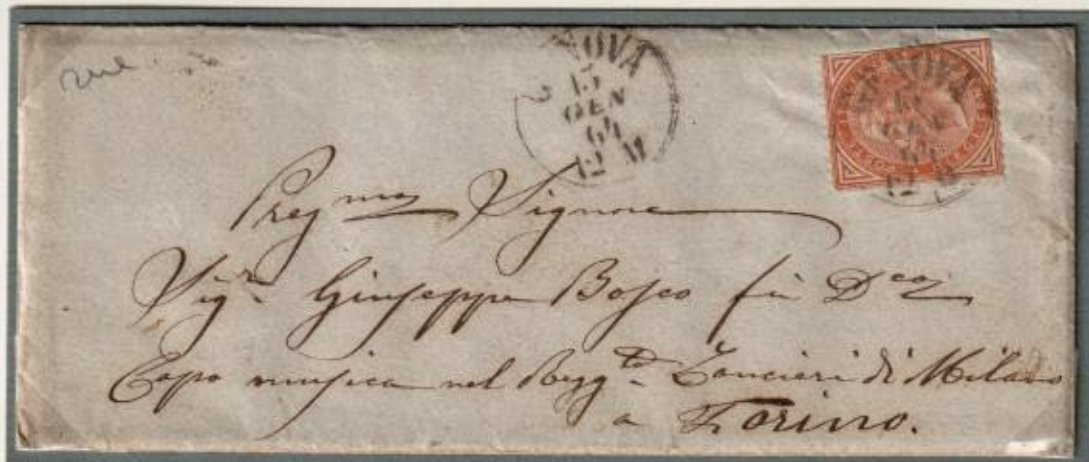 NOVA
15
GEN
64
12 M
GENOVA
15
GEN
64
12 M
Preg.mo Signore
Sig.r Giuseppe Bosco fu D.co
Capo musica nel Regg.to Lancieri di Milano
a Torino.